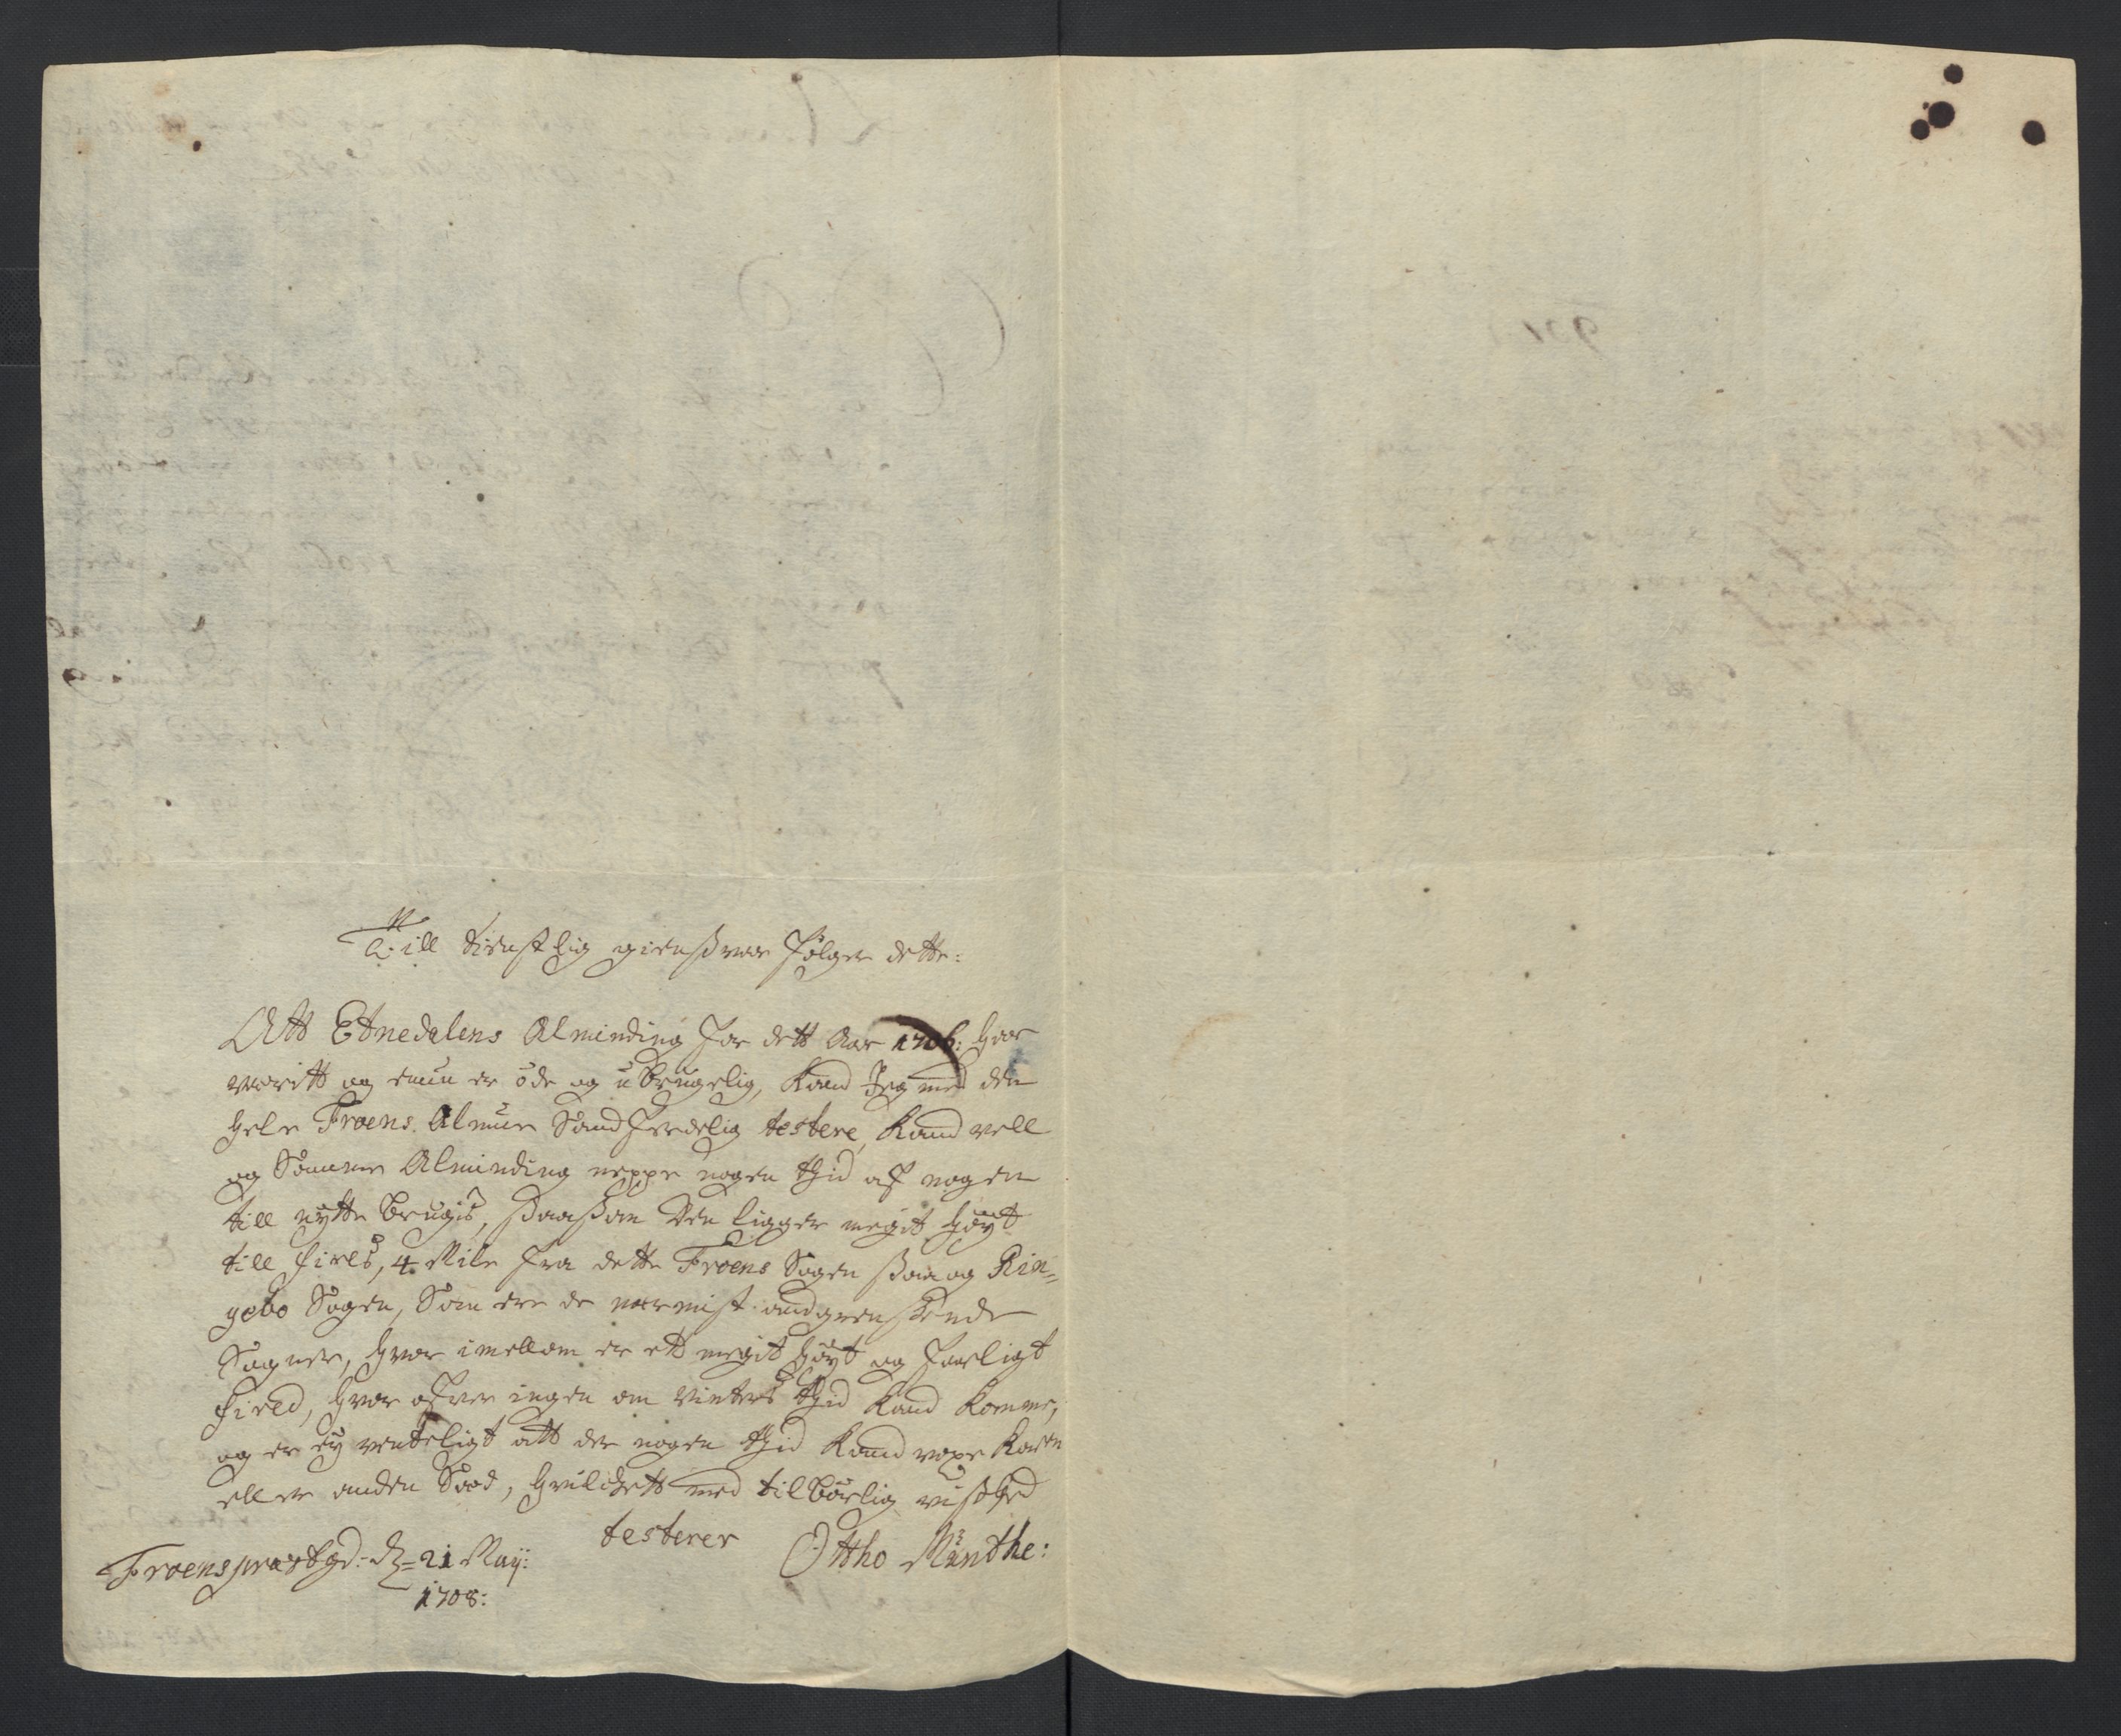 Till tienstlig giensvar følger dette:
Att Etnedalens Alminding for dett Aar 1706: haar
veritt og ennu er øde og ubrugelig, kand Jeg med den
hele Froens Almue Sandferdelig testere, kand vell
og Samme Alminding neppe nogen tjid af nogen
till nytte brugis, saasom den ligger megit høyt
till fields, 4 Mile fra dette Froens Sogen saa og Rin-
gebo Sogen, Som ere de nærmist andgrensende
Sogner, hvor imellom er ett megit høyt og farligt
field, hvor ofver ingen om vinters tjid kand komme,
og er ej venteligt att der nogen tjid kand voxe korn
eller anden Sæd, hvilchett med tilbørlig visshed
testerer Ottho Münthe:
Froens præstgd: d. 21 Maij:
1708: